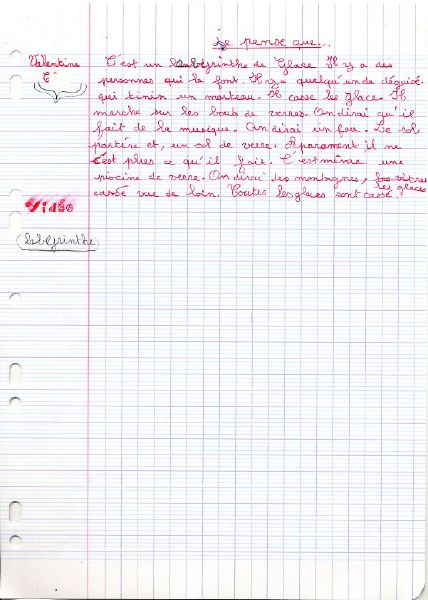 Je pense que...
Valentine
C'est un labyrinthe de Glace Il y a des
personnes qui le font. Il y a quelqu'un de déguisé
qui tinin un marteau. Il casse les glace. Il
marche sur les bouts de verres. On dirai qu'il
fait de la musique. On dirai un fou. Le sol
par et, un sol de verre. Aparament il ne
c'est plus ce qu'il fait. C'est même une
piscine de verre. On dirai des montagnes, les vitres
les glaces
cassé vue de loin. Toutes les glaces sont cassé.
Vidéo
labyrinthe